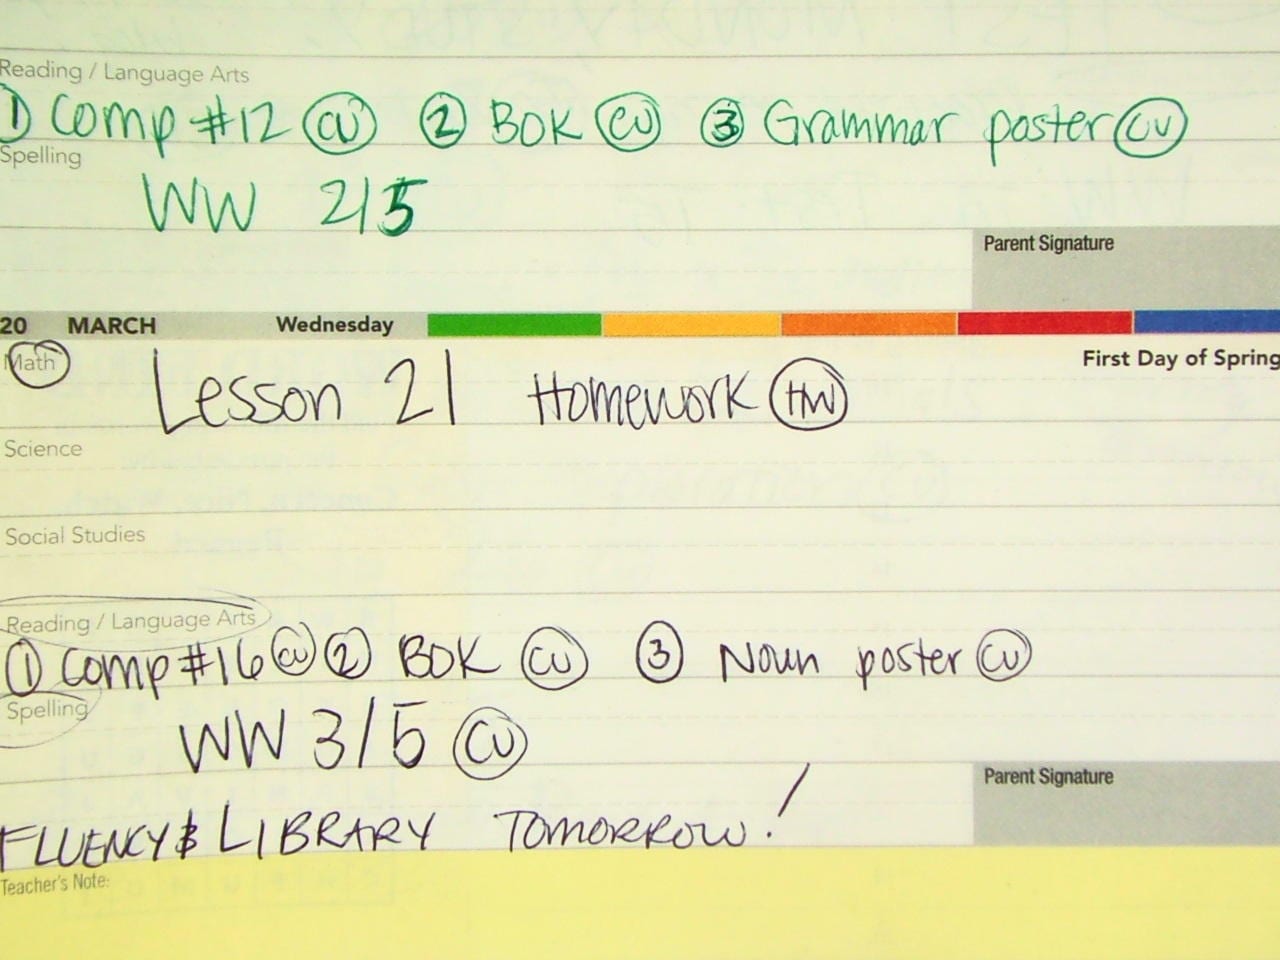 Reading / Language Arts
1 Comp #12 CU 2 BOK CU 3 Grammar poster CU
Spelling
WW 2/5
Parent Signature
20 MARCH Wednesday
Math
First Day of Spring
Lesson 21 Homework HW
Science
Social Studies
Reading / Language Arts
1 Comp #16 CU 2 BOK CU 3 Noun poster CU
Spelling
WW 3/5 CU
Parent Signature
FLUENCY & LIBRARY TOMORROW!
Teacher's Note: